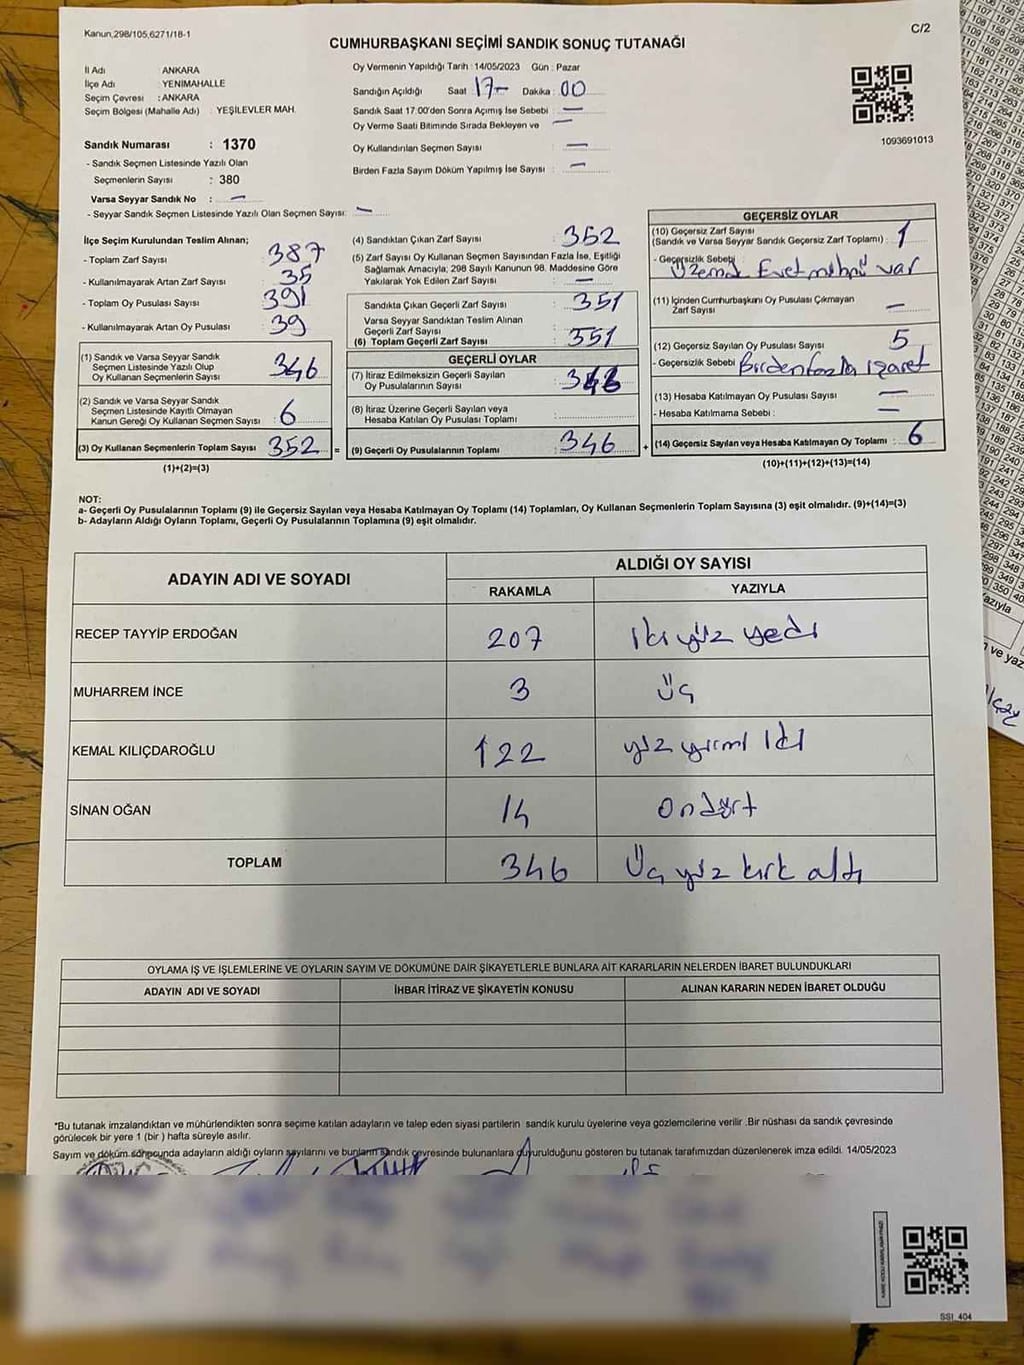 Kanun,298/105,6271/18-1
C/2
CUMHURBAŞKANI SEÇİMİ SANDIK SONUÇ TUTANAĞI
İl Adı ANKARA
İlçe Adı : YENİMAHALLE
Seçim Çevresi : ANKARA
Seçim Bölgesi (Mahalle Adı) : YEŞİLEVLER MAH.
Sandık Numarası : 1370
- Sandık Seçmen Listesinde Yazılı Olan
Seçmenlerin Sayısı : 380
Varsa Seyyar Sandık No : —
- Seyyar Sandık Seçmen Listesinde Yazılı Olan Seçmen Sayısı: —
Oy Vermenin Yapıldığı Tarih : 14/05/2023 Gün : Pazar
Sandığın Açıldığı Saat 17- Dakika : 00
Sandık Saat 17:00'den Sonra Açımış İse Sebebi : —
Oy Verme Saati Bitiminde Sırada Bekleyen ve —
Oy Kullandırılan Seçmen Sayısı : —
Birden Fazla Sayım Döküm Yapılmış İse Sayısı : —
1093691013
İlçe Seçim Kurulundan Teslim Alınan;
- Toplam Zarf Sayısı : 387
- Kullanılmayarak Artan Zarf Sayısı : 35
- Toplam Oy Pusulası Sayısı : 391
- Kullanılmayarak Artan Oy Pusulası : 39
(1) Sandık ve Varsa Seyyar Sandık
Seçmen Listesinde Yazılı Olup
Oy Kullanan Seçmenlerin Sayısı : 346
(2) Sandık ve Varsa Seyyar Sandık
Seçmen Listesinde Kayıtlı Olmayan
Kanun Gereği Oy Kullanan Seçmen Sayısı : 6
(3) Oy Kullanan Seçmenlerin Toplam Sayısı : 352 =
(1)+(2)=(3)
(4) Sandıktan Çıkan Zarf Sayısı : 352
(5) Zarf Sayısı Oy Kullanan Seçmen Sayısından Fazla İse, Eşitliği
Sağlamak Amacıyla; 298 Sayılı Kanunun 98. Maddesine Göre
Yakılarak Yok Edilen Zarf Sayısı : —
Sandıkta Çıkan Geçerli Zarf Sayısı : 351
Varsa Seyyar Sandıktan Teslim Alınan
Geçerli Zarf Sayısı :
(6) Toplam Geçerli Zarf Sayısı : 351
GEÇERLİ OYLAR
(7) İtiraz Edilmeksizin Geçerli Sayılan
Oy Pusulalarının Sayısı : 346
(8) İtiraz Üzerine Geçerli Sayılan veya
Hesaba Katılan Oy Pusulası Toplamı :
(9) Geçerli Oy Pusulalarının Toplamı : 346 +
GEÇERSİZ OYLAR
(10) Geçersiz Zarf Sayısı
(Sandık ve Varsa Seyyar Sandık Geçersiz Zarf Toplamı) : 1
- Geçersizlik Sebebi : Üzerinde Evet mührü var
(11) İçinden Cumhurbaşkanı Oy Pusulası Çıkmayan
Zarf Sayısı : —
(12) Geçersiz Sayılan Oy Pusulası Sayısı : 5
- Geçersizlik Sebebi : Birden fazla işaret
(13) Hesaba Katılmayan Oy Pusulası Sayısı : —
- Hesaba Katılmama Sebebi : —
(14) Geçersiz Sayılan veya Hesaba Katılmayan Oy Toplamı : 6
(10)+(11)+(12)+(13)=(14)
NOT:
a- Geçerli Oy Pusulalarının Toplamı (9) ile Geçersiz Sayılan veya Hesaba Katılmayan Oy Toplamı (14) Toplamları, Oy Kullanan Seçmenlerin Toplam Sayısına (3) eşit olmalıdır. (9)+(14)=(3)
b- Adayların Aldığı Oyların Toplamı, Geçerli Oy Pusulalarının Toplamına (9) eşit olmalıdır.
ADAYIN ADI VE SOYADI ALDIĞI OY SAYISI
RAKAMLA YAZIYLA
RECEP TAYYİP ERDOĞAN 207 iki yüz yedi
MUHARREM İNCE 3 üç
KEMAL KILIÇDAROĞLU 122 yüz yirmi iki
SİNAN OĞAN 14 ondört
TOPLAM 346 Üç yüz kırk altı
OYLAMA İŞ VE İŞLEMLERİNE VE OYLARIN SAYIM VE DÖKÜMÜNE DAİR ŞİKAYETLERLE BUNLARA AİT KARARLARIN NELERDEN İBARET BULUNDUKLARI
ADAYIN ADI VE SOYADI İHBAR İTİRAZ VE ŞİKAYETİN KONUSU ALINAN KARARIN NEDEN İBARET OLDUĞU
*Bu tutanak imzalandıktan ve mühürlendikten sonra seçime katılan adayların ve talep eden siyasi partilerin sandık kurulu üyelerine veya gözlemcilerine verilir .Bir nüshası da sandık çevresinde
görülecek bir yere 1 (bir ) hafta süreyle asılır.
Sayım ve döküm sonucunda adayların aldığı oyların sayılarını ve bunların sandık çevresinde bulunanlara duyurulduğunu gösteren bu tutanak tarafımızdan düzenlenerek imza edildi. 14/05/2023
SSI_404